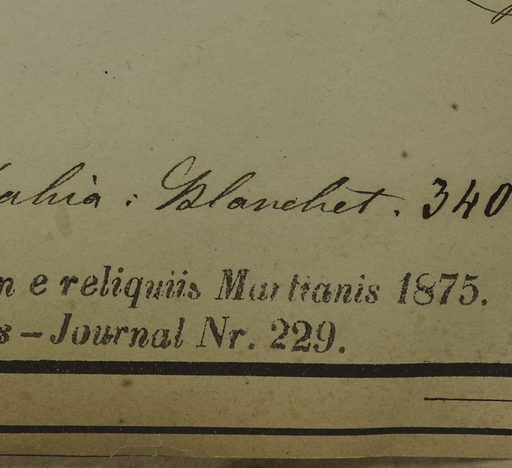 ahia : Blanchet. 340
m e reliquiis Martianis 1875.
s – Journal Nr. 229.